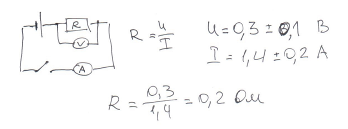 R
V
A
R = U/I
U = 0,3 ± 0,1 В
I = 1,4 ± 0,2 А
R = 0,3/1,4 = 0,2 Ом